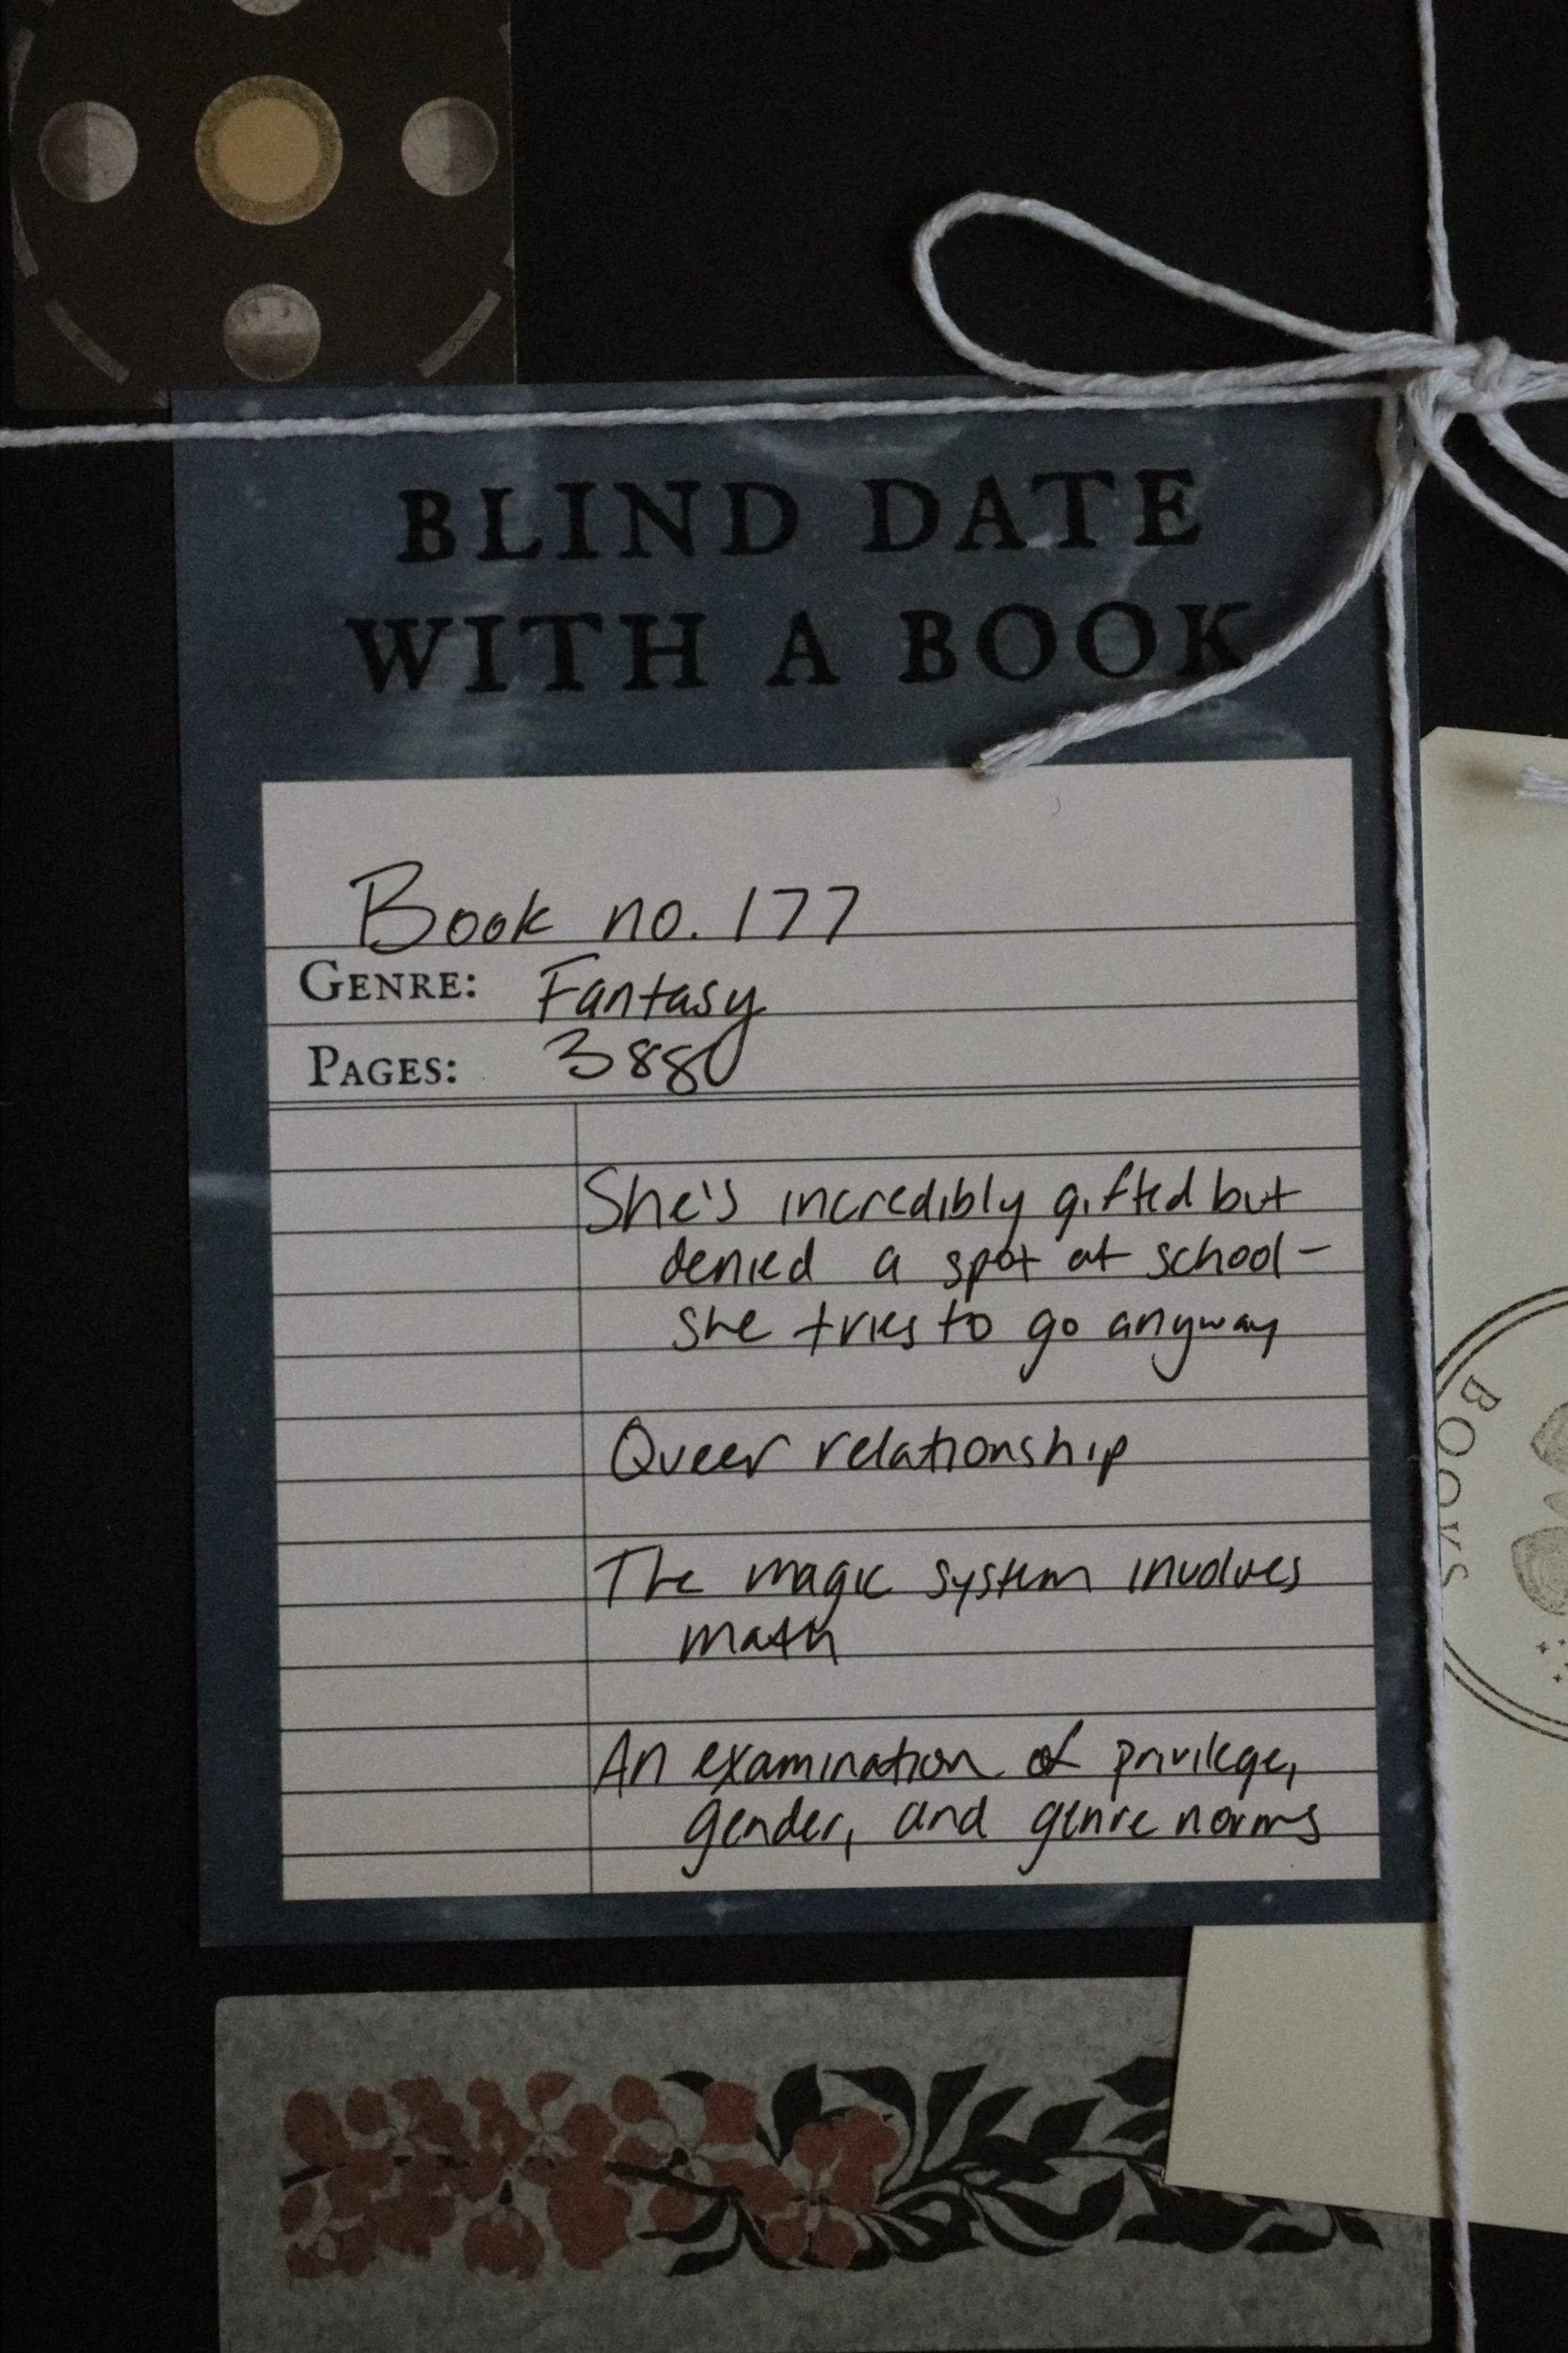 BLIND DATE
WITH A BOOK
Book no. 177
GENRE: Fantasy
PAGES: 388
She's incredibly gifted but
denied a spot at school-
she tries to go anyway
Queer relationship
The magic system involves
math
An examination of privilege,
gender, and genre norms
BOOKS